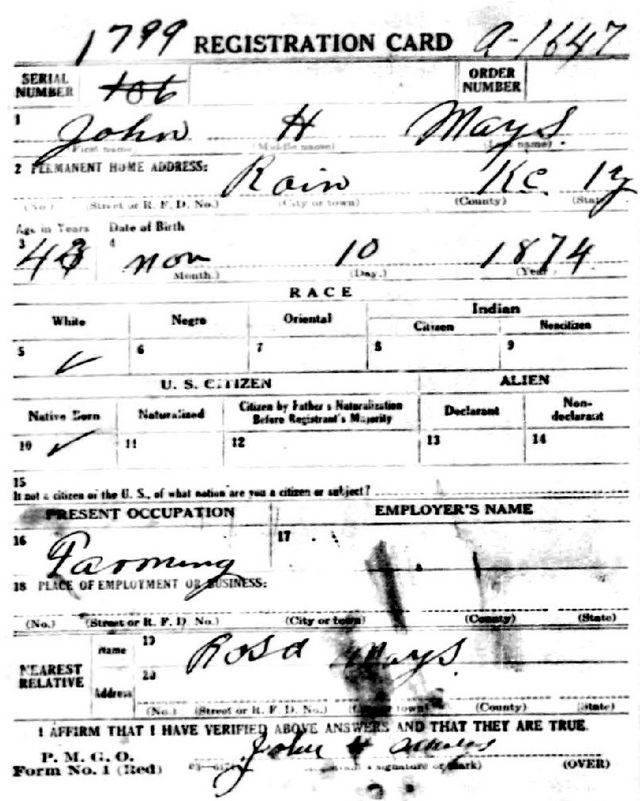 1799 REGISTRATION CARD A-1647
SERIAL NUMBER 106 ORDER NUMBER
1 John H Mays.
(First name) (Middle name) (Last name)
2 PERMANENT HOME ADDRESS: Rain Ky
(No.) (Street or R. F. D. No.) (City or town) (County) (State)
Age in Years Date of Birth
3 43 4 Nov 10 1874
(Month.) (Day.) (Year)
RACE
White Negro Oriental Indian
Citizen Noncitizen
5 ✓ 6 7 8 9
U. S. CITIZEN ALIEN
Native Born Naturalized Citizen by Father's Naturalization Before Registrant's Majority Declarant Non-declarant
10 ✓ 11 12 13 14
15
If not a citizen of the U. S., of what nation are you a citizen or subject?
PRESENT OCCUPATION EMPLOYER'S NAME
16 Farming 17
18 PLACE OF EMPLOYMENT OR BUSINESS:
(No.) (Street or R. F. D. No.) (City or town) (County) (State)
NEAREST RELATIVE Name 19 Rosa Mays
Address 20
(No.) (Street or R. F. D. No.) (City or town) (County) (State)
I AFFIRM THAT I HAVE VERIFIED ABOVE ANSWERS AND THAT THEY ARE TRUE.
P. M. G. O.
Form No. 1 (Red) John H (signature or mark) (OVER)